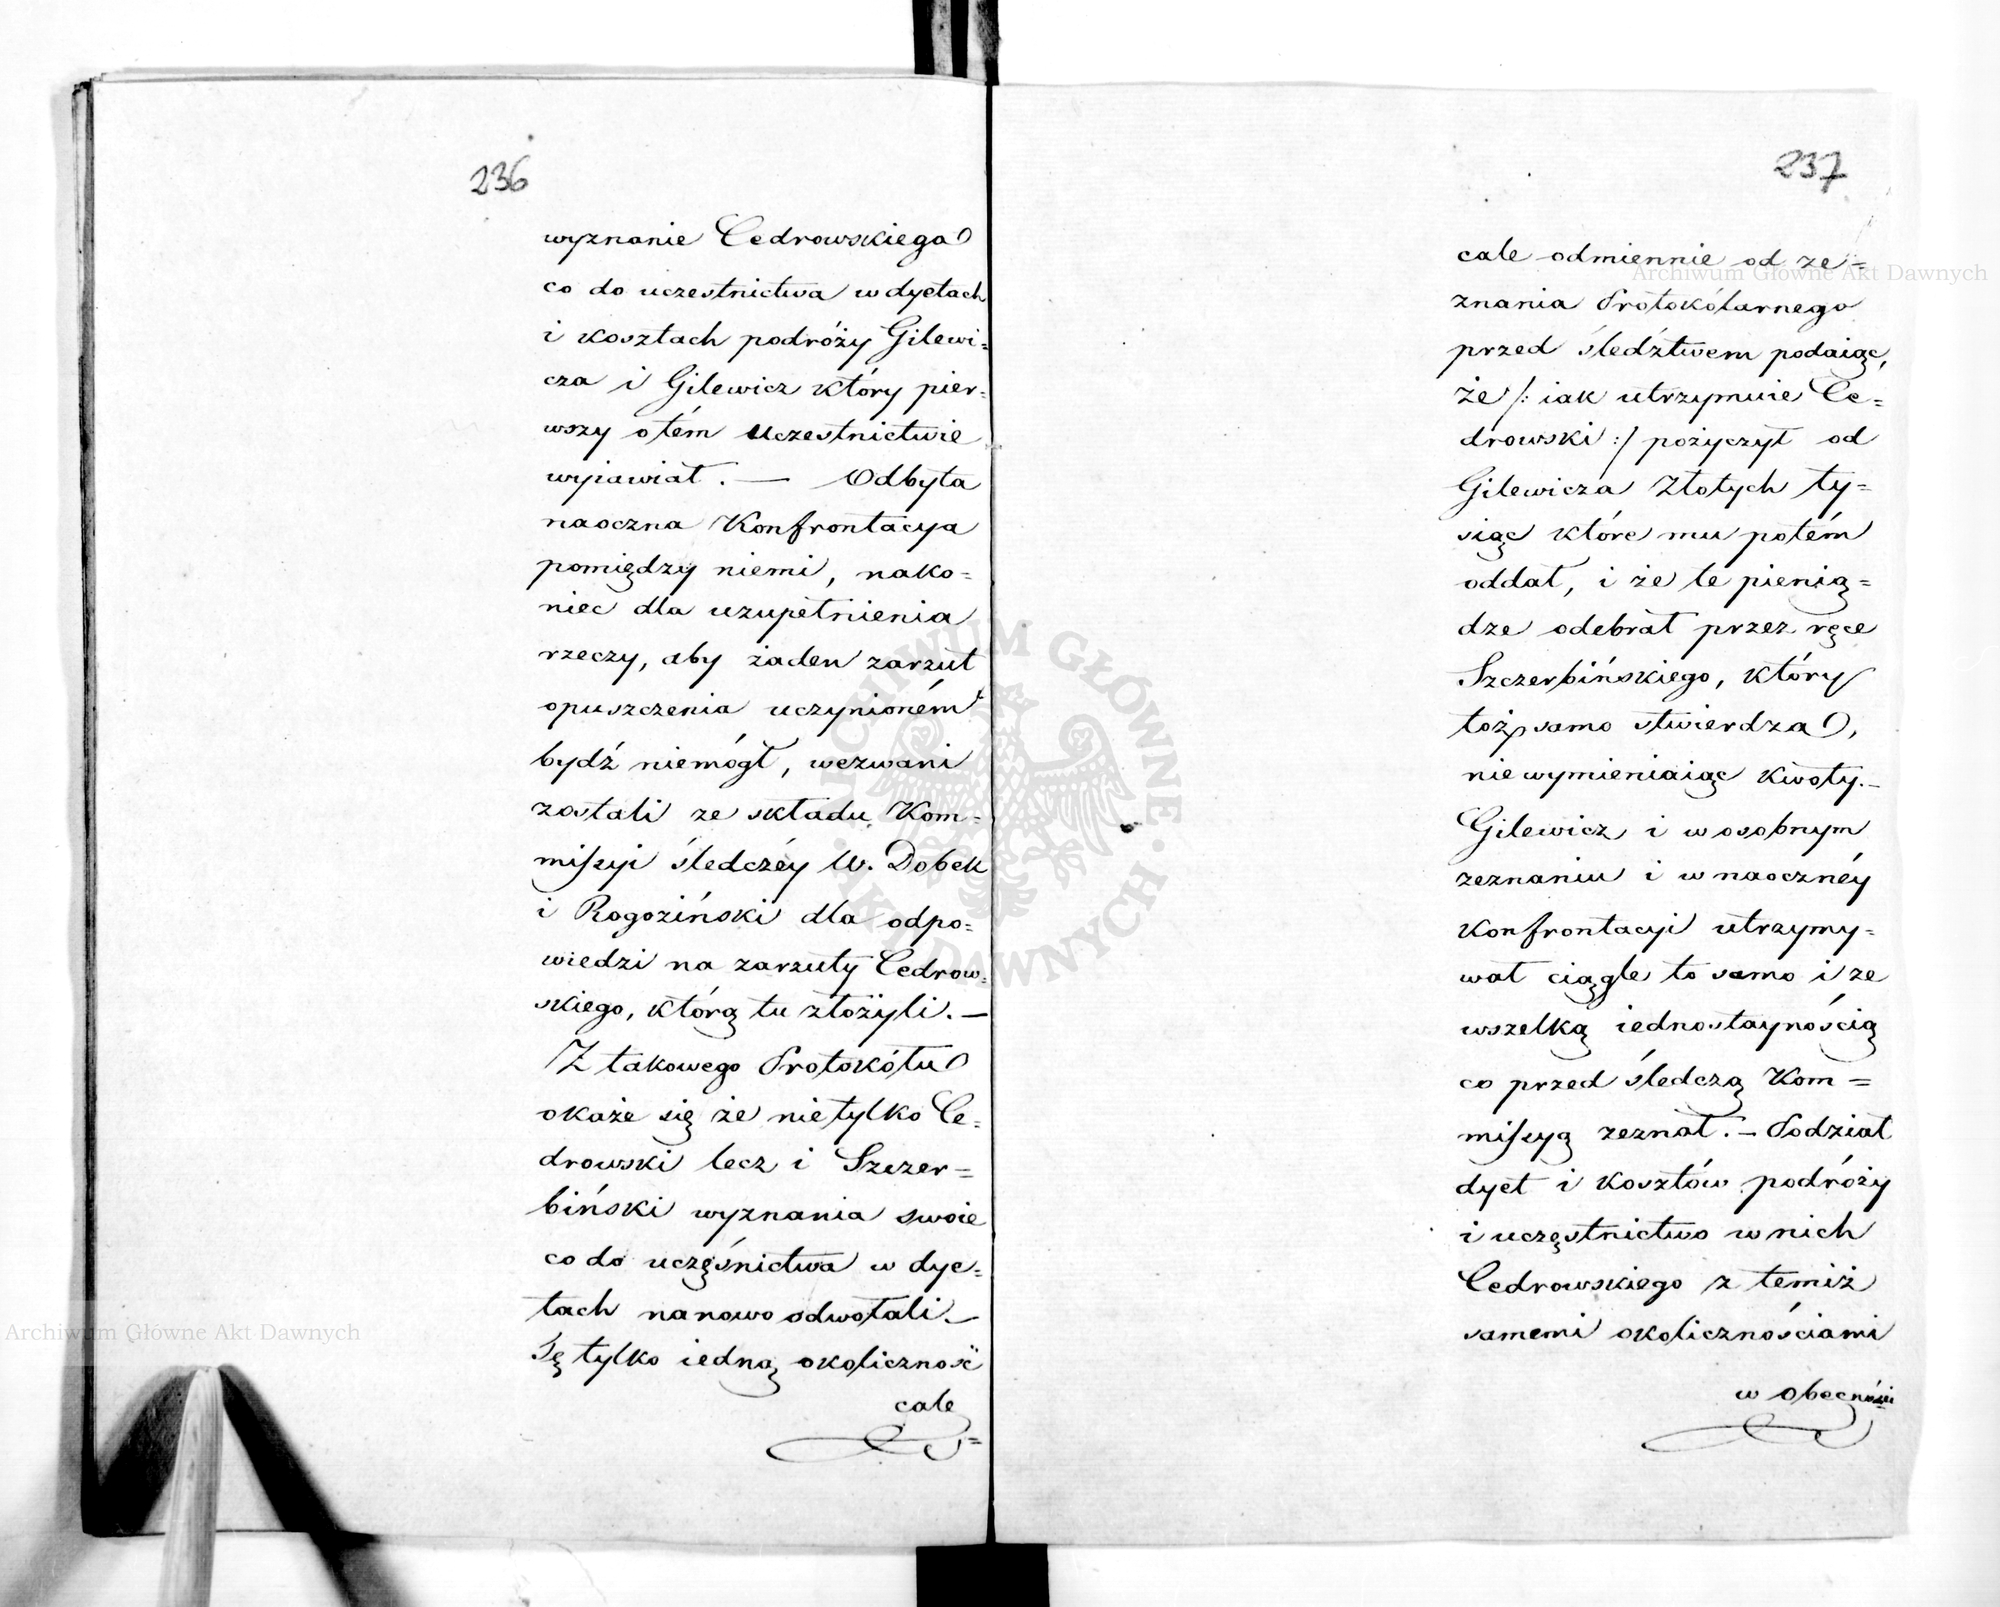 236
wyznanie Cedrowskiego
co do uczestnictwa w dyetach
i kosztach podróży Gilewi=
cza i Gilewicz który pier=
wszy o tém uczestnictwie
wyiawiał. — Odbyta
naoczna Konfrontacya
pomiędzy niemi, nako=
niec dla uzupełnienia
rzeczy, aby żaden zarzut
opuszczenia uczynioném
bydź niemógł, wezwani
zostali ze składu Kom=
missyi śledczéy W. Dobek
i Rogoziński dla odpo=
wiedzi na zarzuty Cedrow=
skiego, którą tu złożyli. —
Z takowego Protokółu
okaże się że nietylko Ce=
drowski lecz i Szczer=
biński wyznania swoie
co do uczęśnictwa w dye=
tach nanowo odwołali. —
Tę tylko iedną okoliczność
całe
237
całe odmiennie od ze=
znania Protokólarnego
przed śledztwem podaiąc,
że /: iak utrzymuie Ce=
drowski :/ pożyczył od
Gilewicza Złotych ty=
siąc które mu potém
oddał, i że te pienią=
dze odebrał przez ręce
Szczerbińskiego, który
toż samo stwierdza,
niewymieniaiąc kwoty. —
Gilewicz i w osobnym
zeznaniu i w naocznéy
Konfrontacyi utrzymy=
wał ciągle to samo i ze
wszelką iednostaynością
co przed śledczą Kom=
missyą zeznał. — Podział
dyet i kosztów podróży
i uczęstnictwo w nich
Cedrowskiego z temiż
samemi okolicznościami
w obecności
Archiwum Główne Akt Dawnych
Archiwum Główne Akt Dawnych
ARCHIWUM GŁÓWNE · AKT DAWNYCH ·